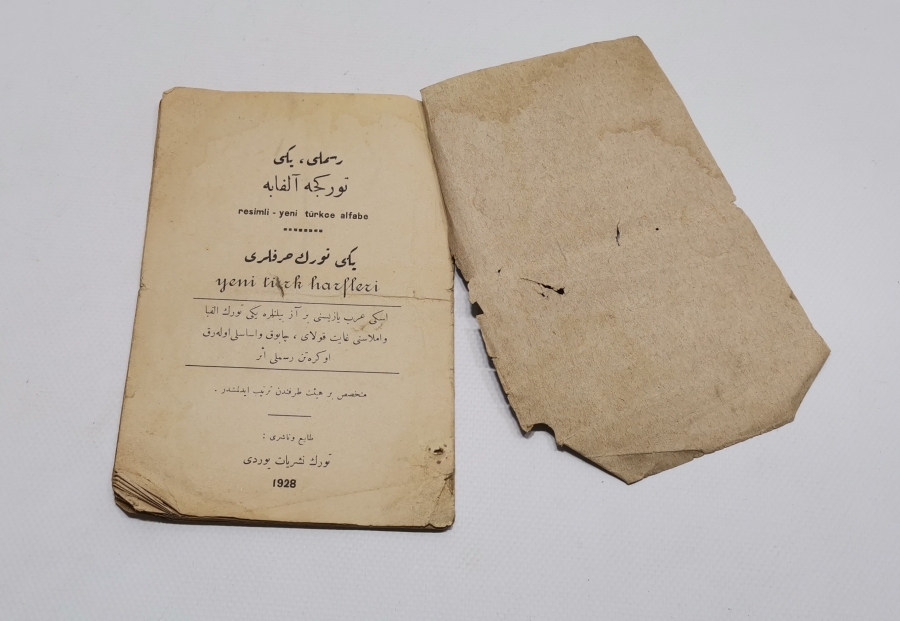 رسملی ، یکی
تورکجه آلفابه
resimli - yeni türkce alfabe
یکی تورك حرفلری
yeni türk harfleri
اسکی عرب یازیسنی بر آز بیلنلره یکی تورك الفبا
واملاسنی غایت قولای ، چابوق واساسلی اوله‌رق
اوکره‌تن رسملی اثر
متخصص بر هیئت طرفندن ترتیب ایدلمشدر .
طابع وناشری :
تورك نشریات یوردی
1928